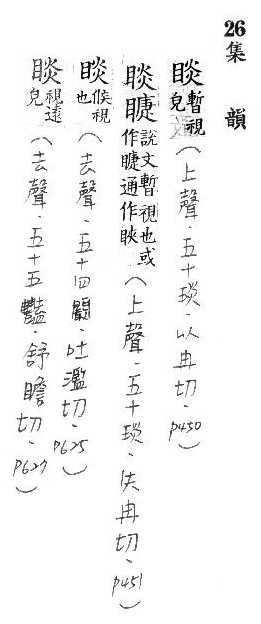 26集 韻
睒暫視皃(上聲.五十琰.以冉切.p450)
睒䁪說文暫視也或作䁪通作睞(上聲.五十琰.失冉切.p451)
睒候視也(去聲.五十四闞.吐濫切.p625)
睒視遠皃(去聲.五十五豔.舒贍切.p627)